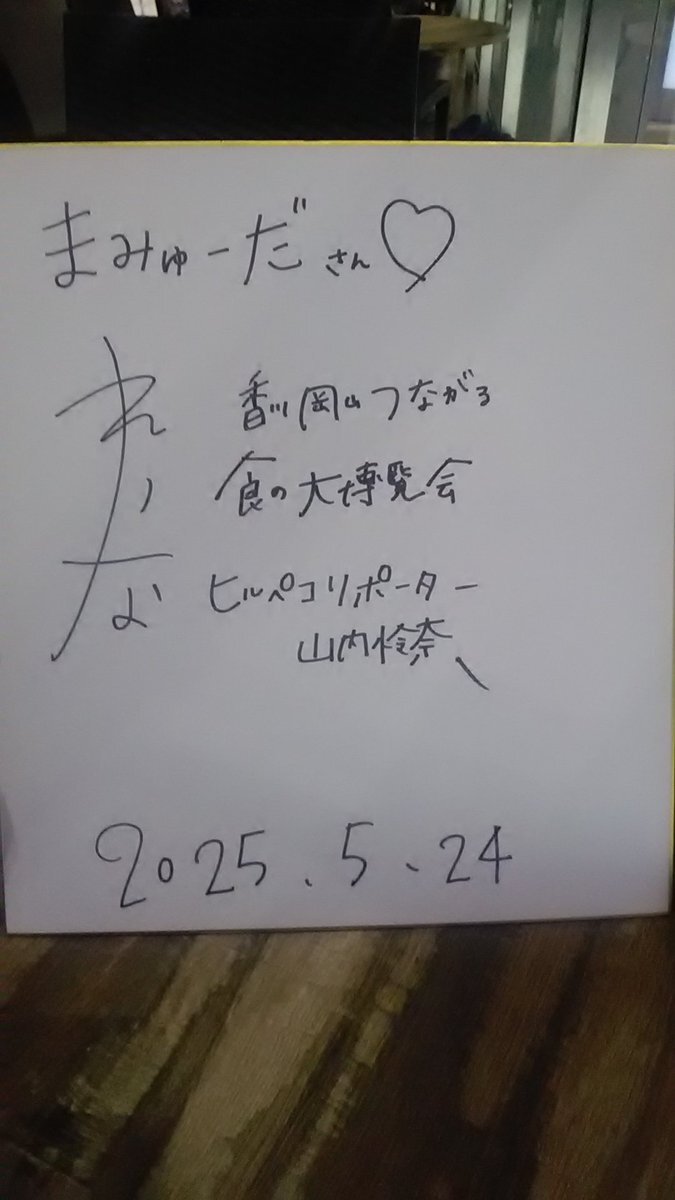 まみゅーださん♡
れいな
香川岡山つながる
食の大博覧会
ヒルペコリポーター
山内怜奈
2025.5.24